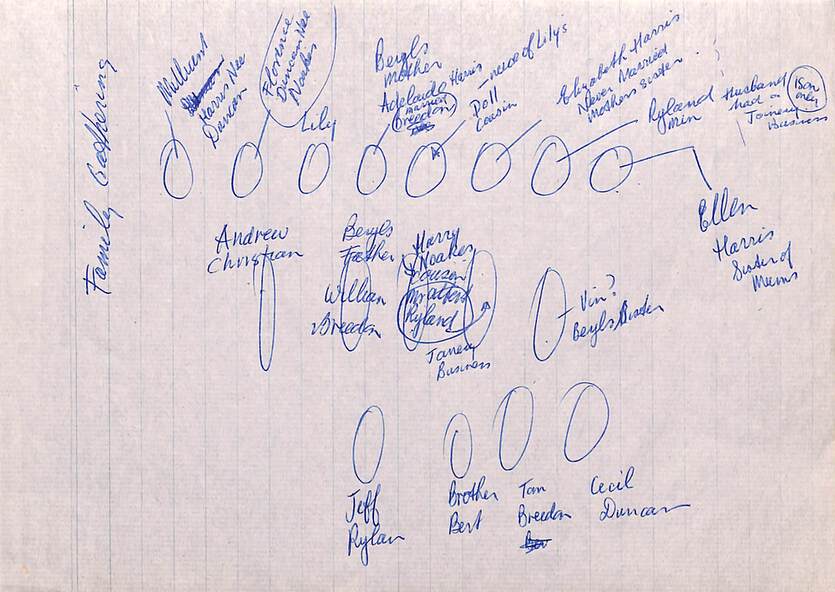 Family Gathering
Millicent
Harris Nee
Duncan
Florence
Duncan Nee
Noakes
Lily
Beryls
Mother
Adelaide Harris
Breedon
Doll
Cousin
niece of Lily's
Elizabeth Harris
Never Married
Mothers Sister
Ryland
Husband
had a
Tannery
Business
1 Son
only
Ellen
Harris
Sister of
Mums
Andrew
Christian
Beryls
Father
William
Breedon
Harry
Noakes
Cousin
Ryland
Tannery
Business
Vin?
Beryls Sister
Jeff
Rylan
Brother
Bert
Tom
Breedon
Cecil
Duncan